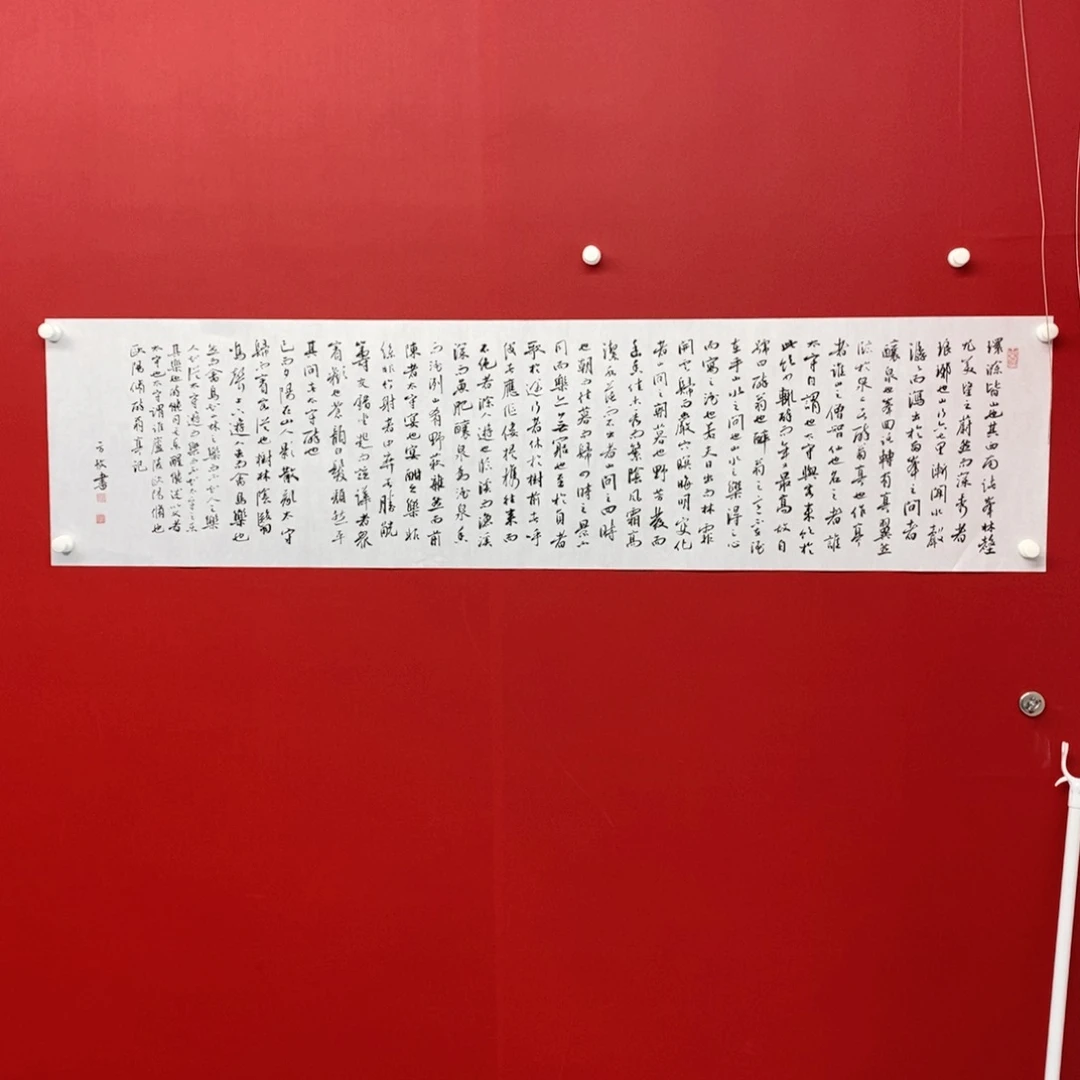 環滁皆山也其西南諸峯林壑
尤美望之蔚然而深秀者
琅琊也山行六七里漸聞水聲
潺潺而瀉出於兩峯之間者
釀泉也峯回路轉有亭翼然
臨於泉上者醉翁亭也作亭
者誰山之僧智仙也名之者誰
太守自謂也太守與客來飲於
此飲少輒醉而年又最高故自
號曰醉翁也醉翁之意不在酒
在乎山水之間也山水之樂得之心
而寓之酒也若夫日出而林霏
開雲歸而巖穴暝晦明變化
者山間之朝暮也野芳發而
幽香佳木秀而繁陰風霜高
潔水落石出者山間之四時
也朝而往暮而歸四時之景不
同而樂亦無窮也至於負者
歌於途行者休於樹前者呼
後者應傴僂提攜往來而
不絕者滁人遊也臨溪而漁溪
深而魚肥釀泉為酒泉香
而酒洌山肴野蔌雜然而前
陳者太守宴也宴酣之樂非
絲非竹射者中弈者勝觥
籌交錯坐起而諠譁者眾
賓歡也蒼顏白髮頹然乎
其間者太守醉也
已而夕陽在山人影散亂太守
歸而賓客從也樹林陰翳
鳴聲上下遊人去而禽鳥樂也
然而禽鳥知山林之樂而不知人之樂
人知從太守遊而樂而不知太守之樂
其樂也醉能同其樂醒能述以文者
太守也太守謂誰廬陵歐陽修也
歐陽修醉翁亭記
書